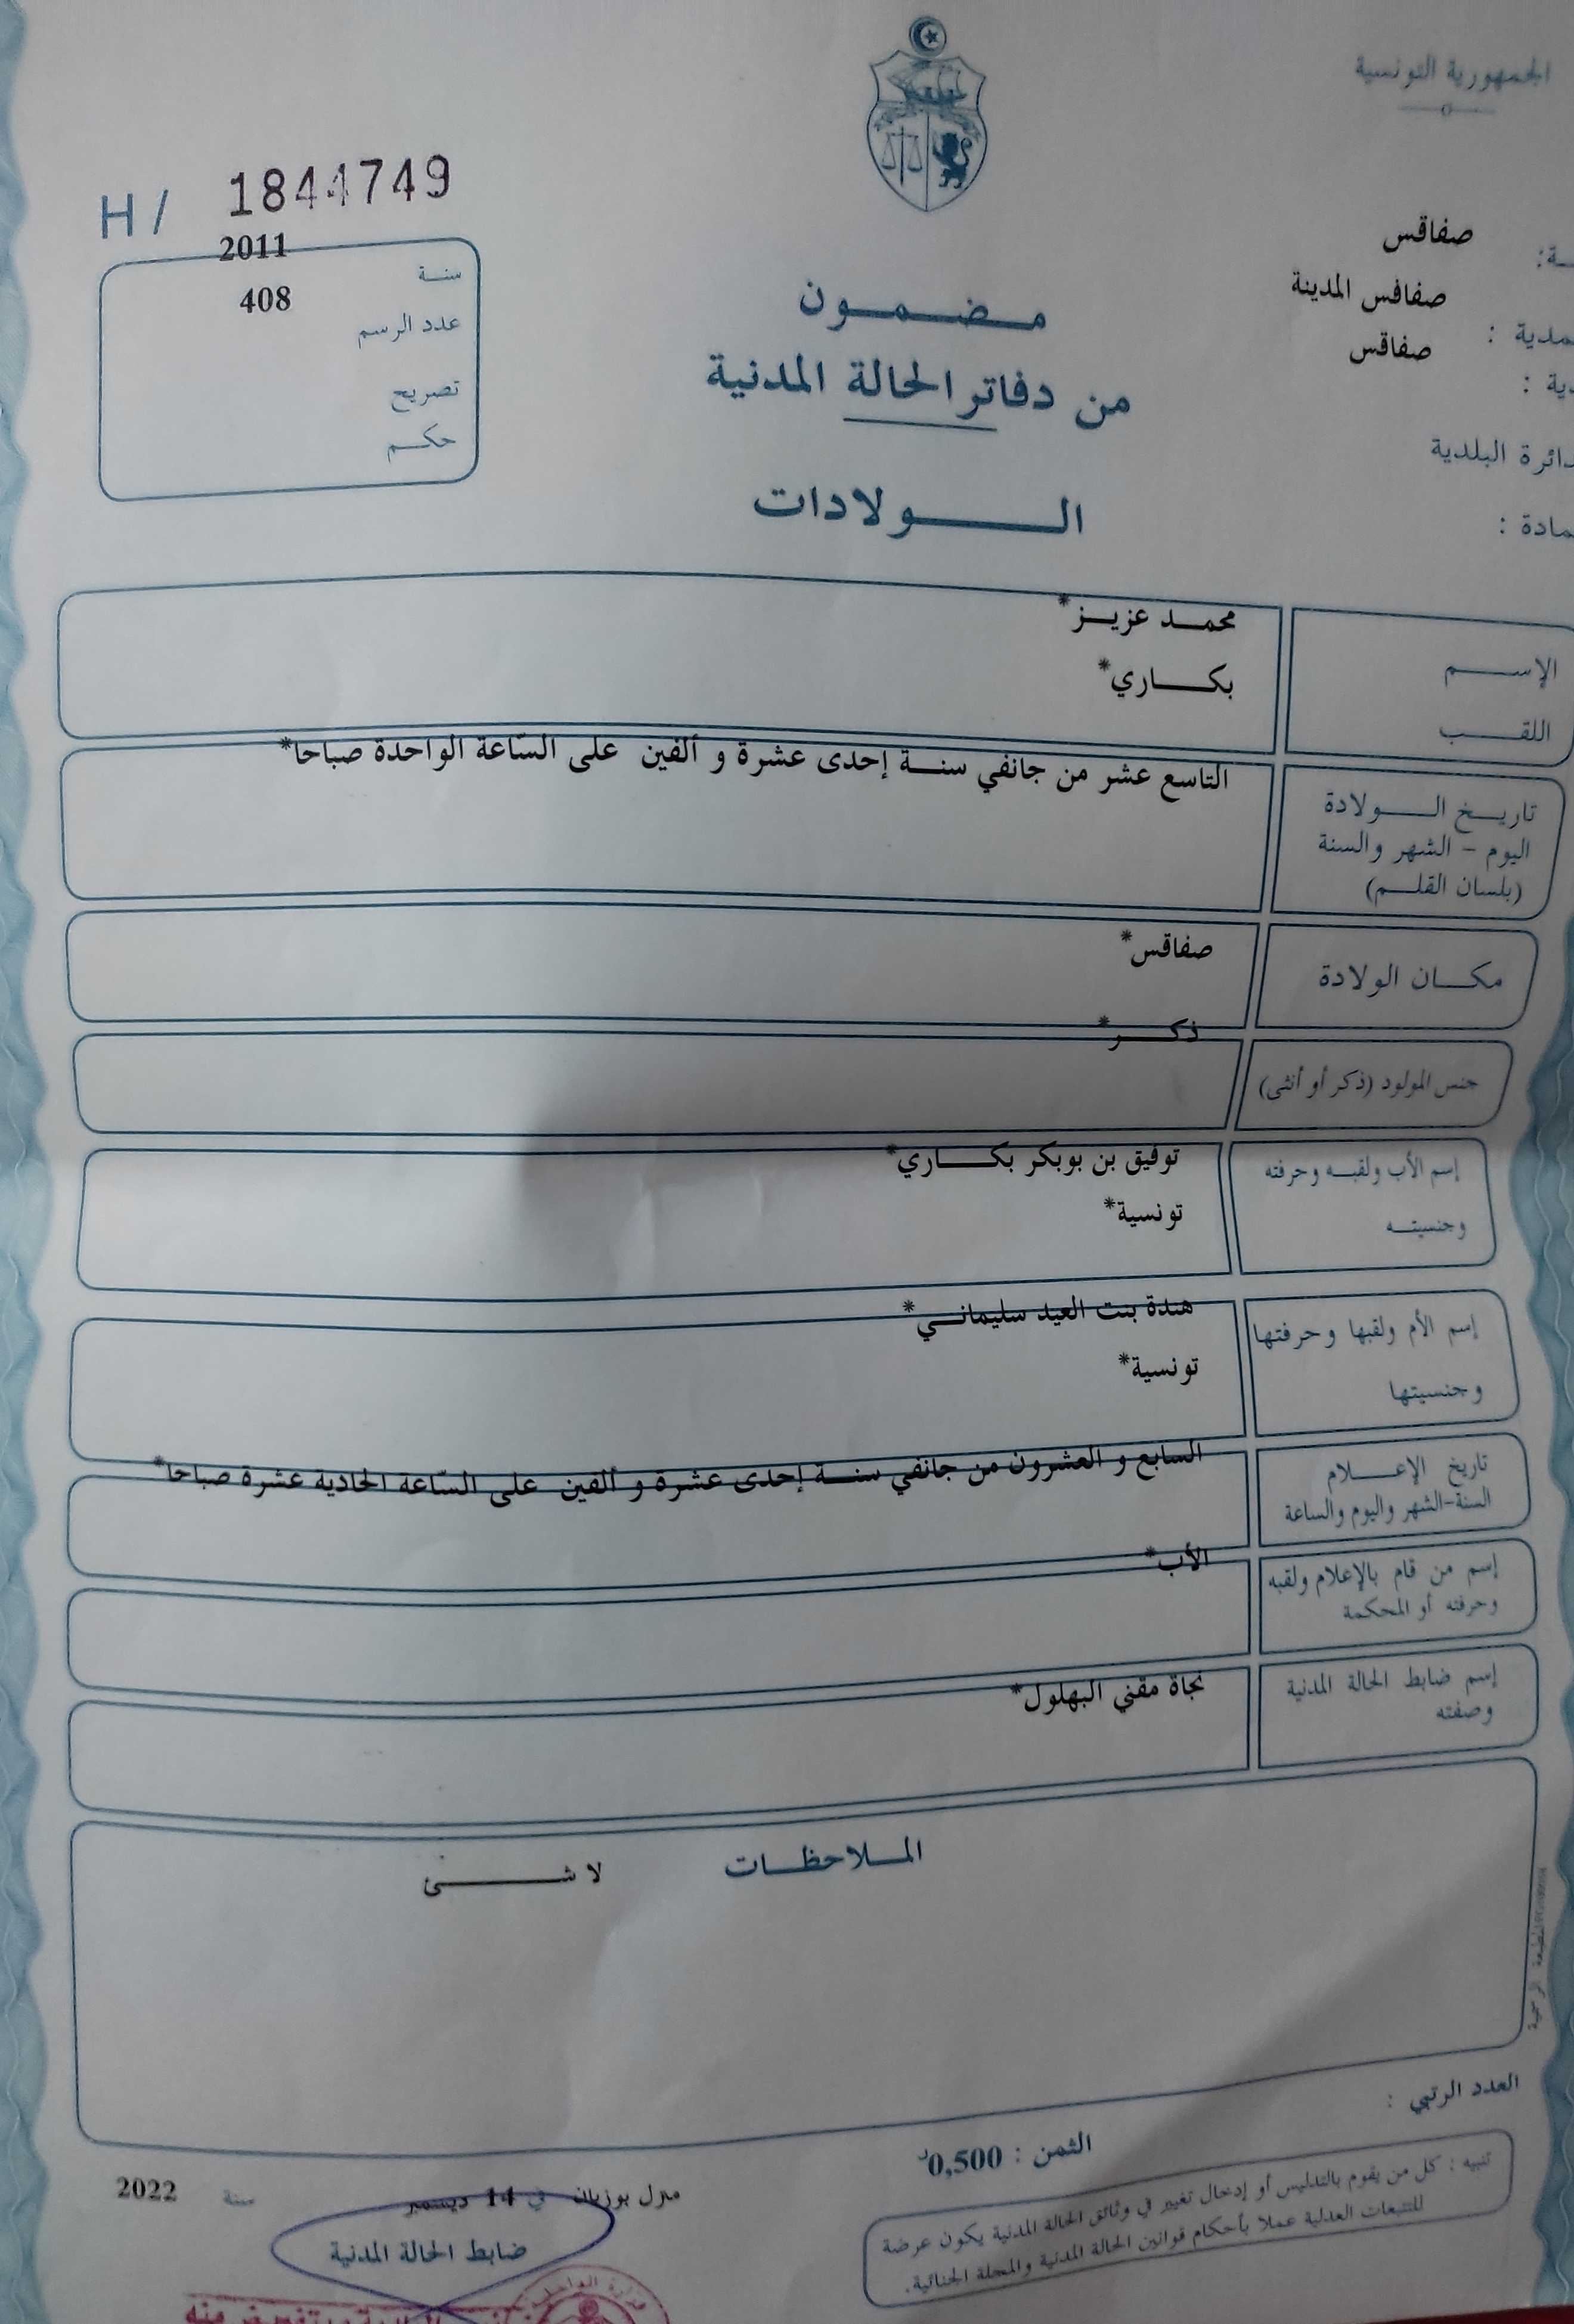 الجمهورية التونسية
H / 1844749
صفاقس
صفاقس المدينة
صفاقس
دائرة البلدية
سنة 2011
عدد الرسم 408
تصريح
حكم
مضمون
من دفاتر الحالة المدنية
الولادات
الإسم محمد عزيز*
اللقب بكاري*
تاريخ الولادة
اليوم - الشهر والسنة
(بلسان القلم)
التاسع عشر من جانفي سنة إحدى عشرة و ألفين على السّاعة الواحدة صباحا*
مكان الولادة صفاقس*
جنس المولود (ذكر أو أنثى) ذكر*
إسم الأب ولقبه وحرفته
وجنسيته
توفيق بن بوبكر بكاري*
تونسية*
إسم الأم ولقبها وحرفتها
وجنسيتها
هندة بنت العيد سليماني*
تونسية*
تاريخ الإعلام
السنة-الشهر واليوم والساعة
السابع و العشرون من جانفي سنة إحدى عشرة و ألفين على السّاعة الحادية عشرة صباحا*
إسم من قام بالإعلام ولقبه
وحرفته أو المحكمة
الأب*
إسم ضابط الحالة المدنية
وصفته
نجاة مقني البهلول*
الملاحظات
لا شئ
العدد الرتبي :
الثمن : 0,500د
تنبيه : كل من يقوم بالتدليس أو إدخال تغيير في وثائق الحالة المدنية يكون عرضة
للتتبعات العدلية عملا بأحكام قوانين الحالة المدنية والمجلة الجنائية.
منزل بوزيان في 14 ديسمبر سنة 2022
ضابط الحالة المدنية